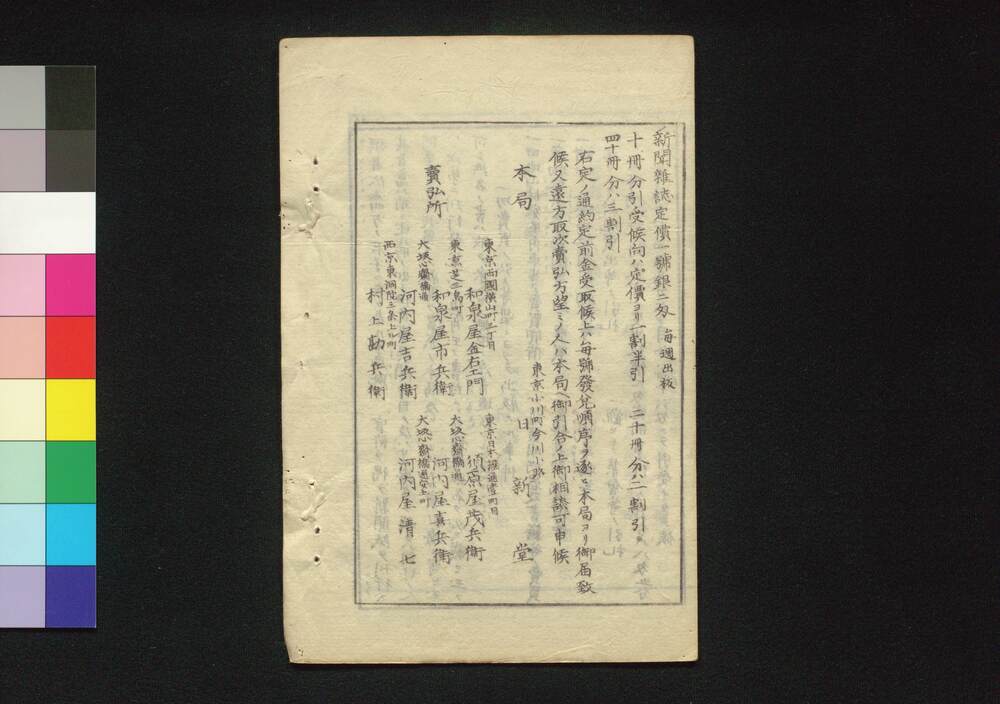 新聞雜誌定價一號銀二匁 毎週出板
十冊分引受候向ハ定價ヨリ一割半引 二十冊分ハ二割引
四十冊分ハ三割引
右定ノ通約定前金受取候上ハ毎號發兌順序ヲ逐ヒ本局ヨリ御届致
候又遠方取次賣弘方望ミノ人ハ本局ヘ御引合ノ上御相談可申候
東京小川町今川小路
本局 日新堂
賣弘所
東京両國横山町三丁目
和泉屋金右エ門
東京日本橋通壹丁目
須原屋茂兵衛
東京芝三島町
和泉屋市兵衛
大坂心齋橋通
河内屋真兵衛
大坂心齋橋通
河内屋吉兵衛
大坂心齋橋通安土町
河内屋清七
西京東洞院三条上ル町
村上勘兵衛